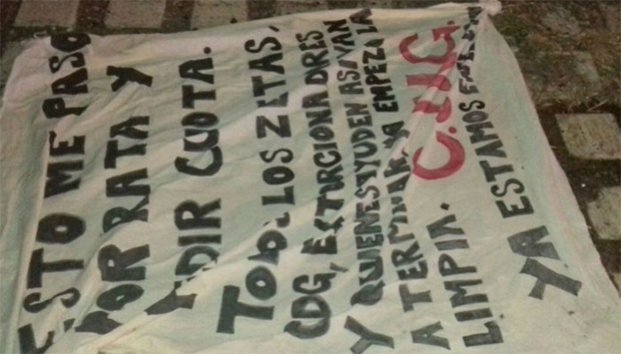 ESTO ME PASO
POR RATA Y
PEDIR CUOTA.
TODO LOS ZETAS,
CDG, EXTURCIONADRES
Y QUIENES AYUDEN ASI VAN
A TERMINAR YA EMPEZO LA
LIMPIA. C.J.N.G.
YA ESTAMOS